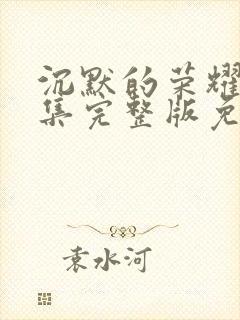 沉默的荣耀
集完整版免
袁水河